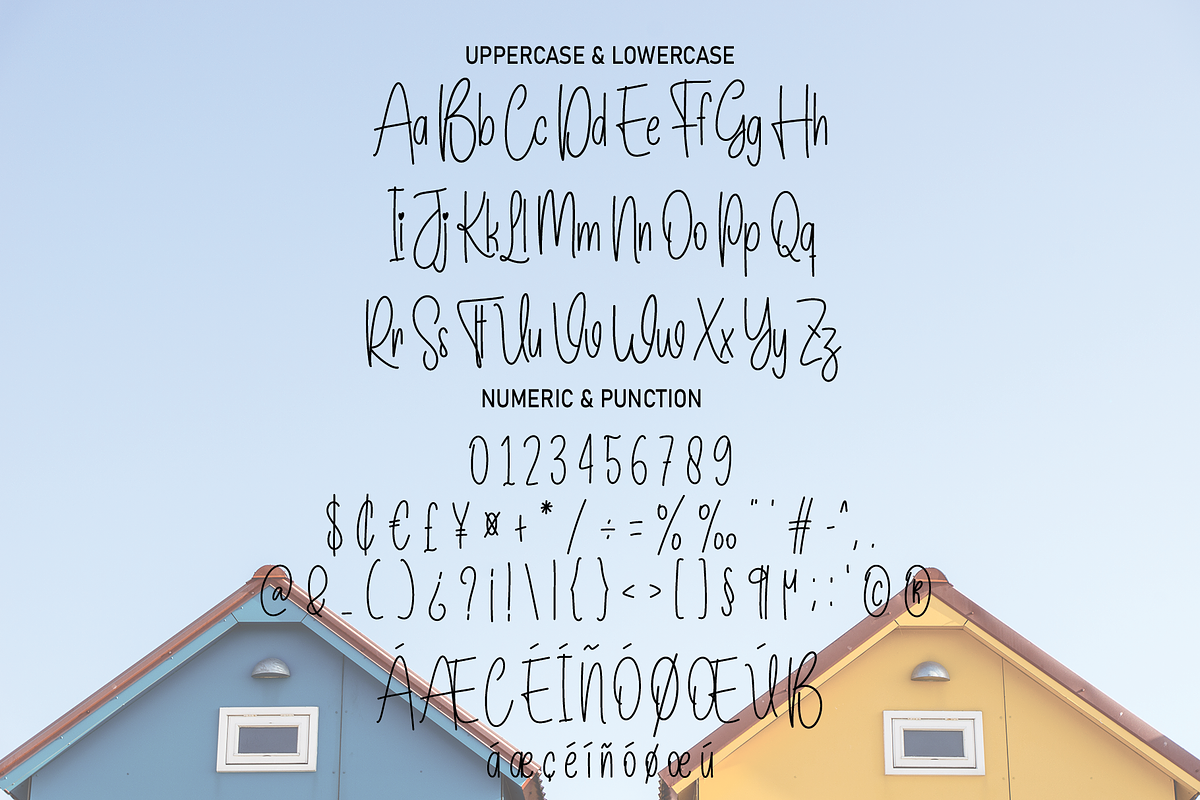 UPPERCASE & LOWERCASE
Aa Bb Cc Dd Ee Ff Gg Hh
Ii Jj Kk Ll Mm Nn Oo Pp Qq
Rr Ss Tt Uu Vv Ww Xx Yy Zz
NUMERIC & PUNCTION
0123456789
$ ₵ € £ ¥ ¤ + * / ÷ = % ‰ " ' # - ^ , .
@ & _ ( ) ¿ ? ¡ ! \ | { } < > [ ] § ¶ µ ; : ' © ®
Á Æ C É Í Ñ Ó Ø Œ Ú B
á æ ç é í ñ ó ø œ ú